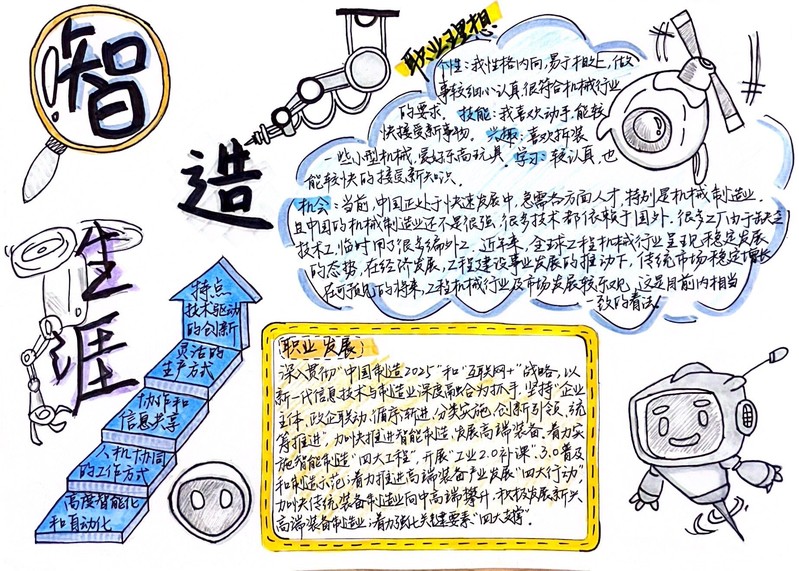 智
造
生涯
职业理想
个性:我性格内向,易于相处,做
事较细心认真,很符合机械行业
的要求。技能:我喜欢动手,能较
快接受新事物。兴趣:喜欢拆装
一些小型机械,爱好乐高玩具。学习:较认真,也
能较快的接受新知识。
机会:当前,中国正处于快速发展中,急需各方面人才,特别是机械制造业。
且中国的机械制造业还不是很强,很多技术都依赖于国外,很多工厂由于缺乏
技术工,临时用了很多编外工。近年来,全球工程机械行业呈现稳定发展
的态势,在经济发展,工程建设事业发展的推动下,传统市场稳定增长
在可预见的将来,工程机械行业及市场发展较乐观,这是目前内相当
一致的看法。
特点
技术驱动
的创新
灵活的
生产方式
协作和
信息共享
人机协同
的工作方式
高度智能化
和自动化
职业发展
深入贯彻“中国制造2025”和“互联网+”战略,以
新一代信息技术与制造业深度融合为抓手,坚持“企业
主体,政企联动,循序渐进,分类实施,创新引领,统
筹推进”,加快推进智能制造,发展高端装备。着力实
施智能制造“四大工程”,开展“工业2.0补课”、3.0普及
和制造示范;着力推进高端装备产业发展“四大行动”
加快传统装备制造业向中高端攀升,积极发展新兴
高端装备制造业;着力强化关键要素“四大支撑”。